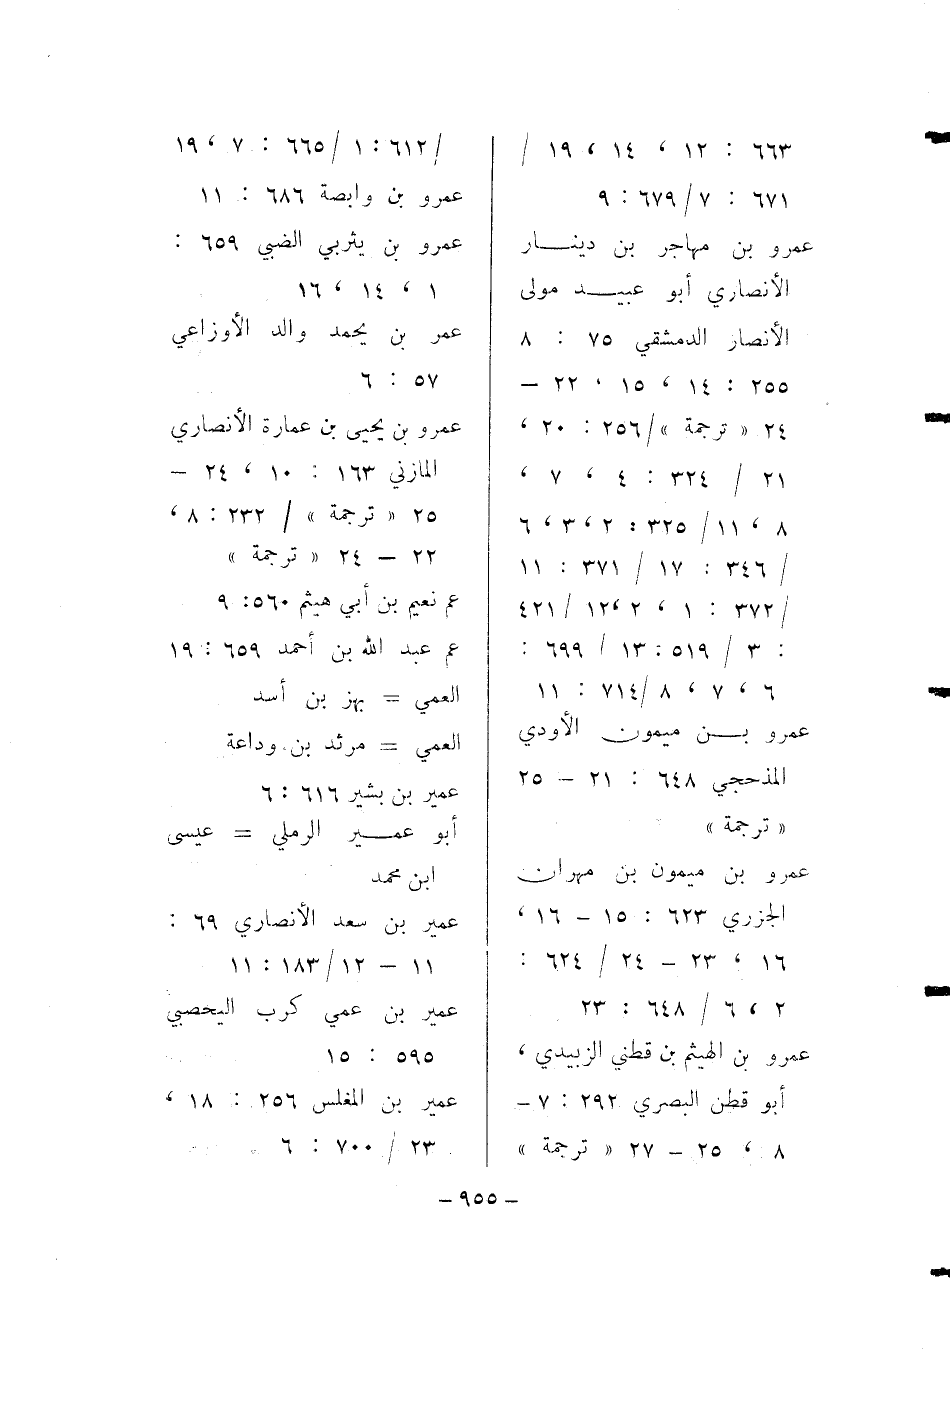 ٦٦٣ : ١٢ ، ١٤ ، ١٩ /
٦٧١ : ٧ / ٦٧٩ : ٩
عمرو بن مهاجر بن دينـــار
الأنصاري أبو عبيـــد مولى
الأنصار الدمشقي ٧٥ : ٨
٢٥٥ : ١٤ ، ١٥ ، ٢٢ –
٢٤ « ترجمة » / ٢٥٦ : ٢٠ ،
٢١ / ٣٢٤ : ٤ ، ٧ ،
٨ ، ١١ / ٣٢٥ : ٢ ، ٣ ، ٦
/ ٣٤٦ : ١٧ / ٣٧١ : ١١
/ ٣٧٢ : ١ ، ٢ ، ١٢ / ٤٢١
: ٣ / ٥١٩ : ١٣ / ٦٩٩ :
٦ ، ٧ ، ٨ / ٧١٤ : ١١
عمرو بـــن ميمون الأودي
المذحجي ٦٤٨ : ٢١ – ٢٥
« ترجمة »
عمرو بن ميمون بن مهران
الجزري ٦٢٣ : ١٥ – ١٦ ،
١٦ ، ٢٣ – ٢٤ / ٦٢٤ :
٢ ، ٦ / ٦٤٨ : ٢٣
عمرو بن الهيثم بن قطني الزبيدي ،
أبو قطن البصري ٢٩٢ : ٧ –
٨ ، ٢٥ – ٢٧ « ترجمة »
/ ٦١٢ : ١ / ٦٦٥ : ٧ ، ١٩
عمرو بن وابصة ٦٨٦ : ١١
عمرو بن يثربي الضبي ٦٥٩ :
١ ، ١٤ ، ١٦
عمر بن يحمد والد الأوزاعي
٥٧ : ٦
عمرو بن يحيى بن عمارة الأنصاري
المازني ١٦٣ : ١٠ ، ٢٤ –
٢٥ « ترجمة » / ٢٣٢ : ٨ ،
٢٢ – ٢٤ « ترجمة »
عم نعيم بن أبي هيثم ٥٦٠ : ٩
عم عبد الله بن أحمد ٦٥٩ : ١٩
العمي = بهز بن أسد
العمي = مرثد بن وداعة
عمير بن بشير ٦١٦ : ٦
أبو عمـــير الرملي = عيسى
ابن محمد
عمير بن سعد الأنصاري ٦٩ :
١١ – ١٢ / ١٨٣ : ١١
عمير بن عمي كرب اليحصبي
٥٩٥ : ١٥
عمير بن المغلس ٢٥٦ : ١٨ ،
٢٣ / ٧٠٠ : ٦
– ٩٥٥ –